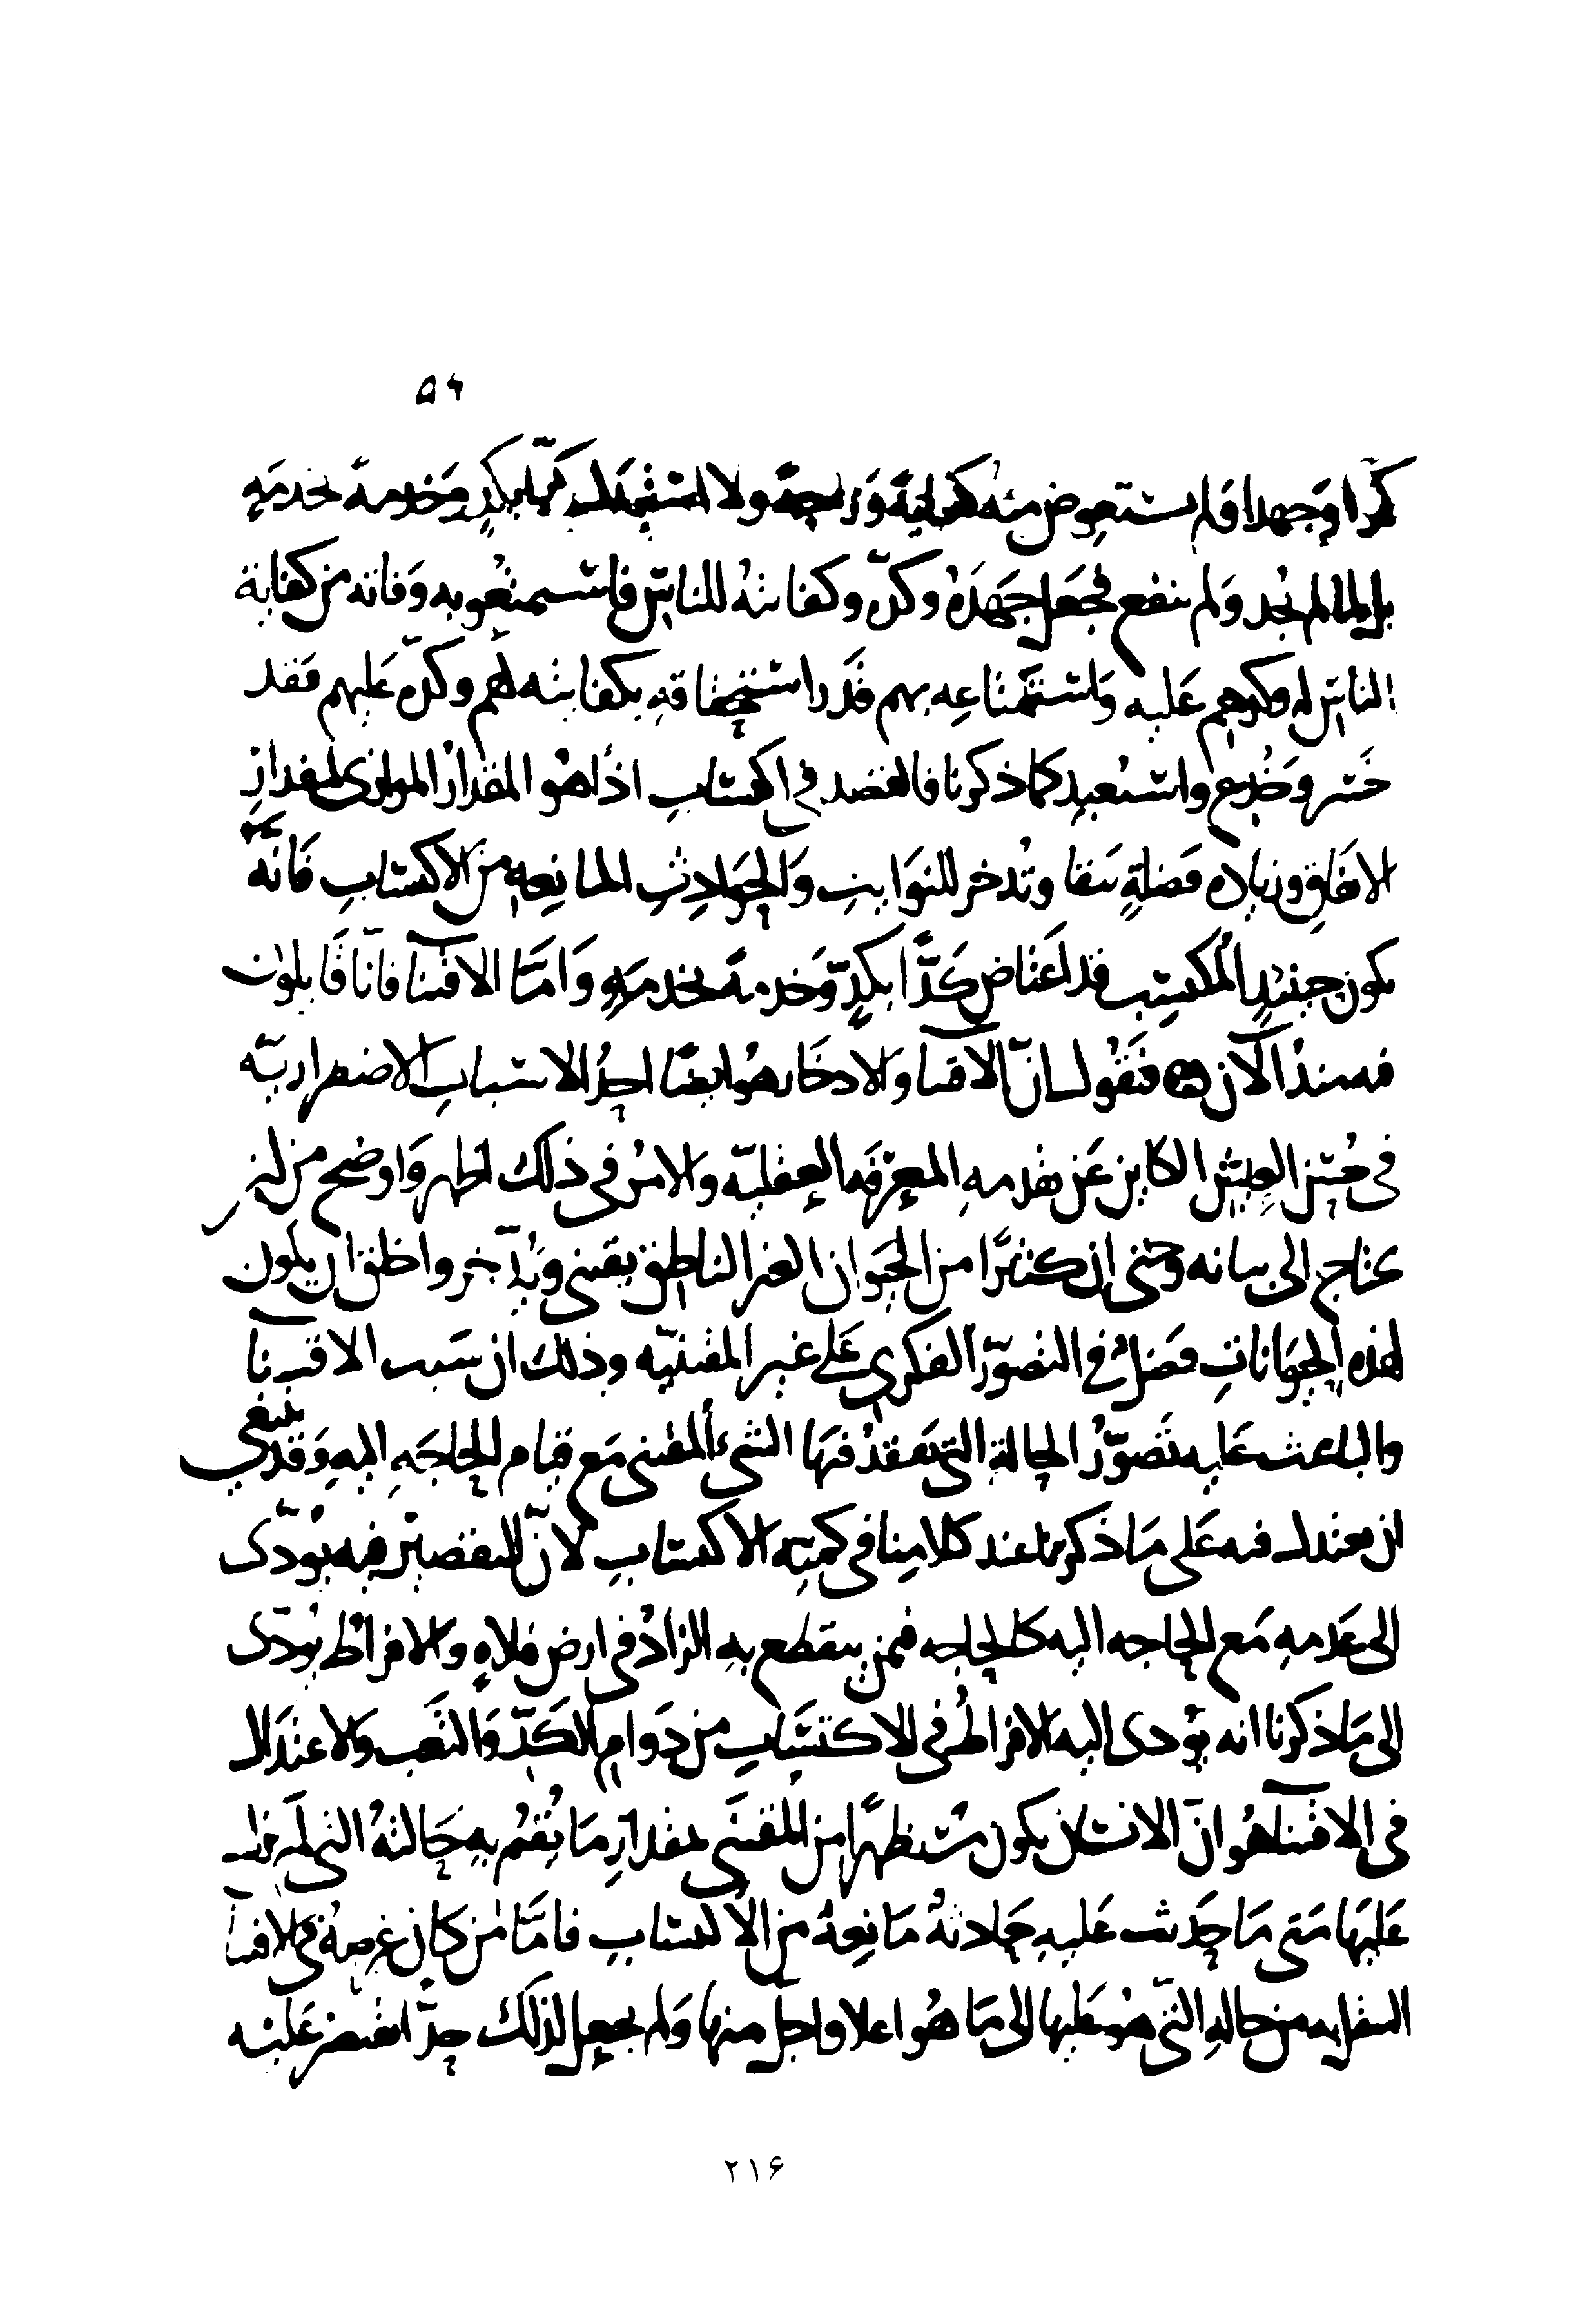 ٥٦
كدًا وَجهدا وَلم يستعوض منه كفايَةً وَرَاحةً ولا استبدل كدًّا بكدٍ وَخدمة بخدمَهٍ
بل لما لم يُجد وَلم ينفع فجعَل جَهدَهُ وكدّه وكفايتهُ للناسِ فاستمتعُوا به وَفاته من كفاية
الناس له وكدهم عَليه وَاستمتاعِه بهم قَدر استحقاقهِ بكفايته لهُم وكدّه عَليهم فقد
خَسر وَخُدع واستعبد كما ذكرنا فالقصد في اكتسابِ اذًا هُو المقدارُ الموازى لمقدارِ
الانفاقِ وزيادة فضلةٍ تقتنا وتُدخر للنوَايبِ وَالحَوادِثِ المانِعهِ من الاكتسابِ فَانَّهُ
يكون حينئذٍ المُكتسِب قد اعتَاض كَدًّا بكدٍّ وَخدمةً بخدمَةٍ وَامّا الاقتنا فانّا قَايلون
فيه منذُ الآن فنَقُول انّ الاقتنا والادخَار هُو ايضًا احدُ الاسبابِ الاضطراريّه
في حُسن العيش الكاين عَن تقدمهِ المعرفَه العقليّه والامرُ في ذلك اظهر وَاوضح من ان
يحتاج الى بيانه وحتى ان كثيرًا من الحَيوان الغير الناطق يقتنى وَيدّخر واظن ان يكون
لهذه الحيوانَاتِ فَضلٌ في التصوّر الفكرى عَلى غير المقتنيه وذلك ان سَبب الاقتنا
والباعث عَليه تَصوّرُ الحالة التى يَفقدُ فيهَا الشىء المقتنى مَع قيام الحاجَهِ اليهِ وَقد ينبغى
ان يعتدل فيه عَلى مَا ذكرنا عند كلامِنا في كميّه الاكتسابِ لانّ التقصير فيه يُؤدّى
الى عَدمهِ مَع الحاجه اليه كالحاجه فمن ينقطع بهِ الزادُ فى ارض فلاهٍ والافراط يُؤدّى
الى مَا ذكرنا انه يؤدى اليه الافراطُ فى الاكتسَابِ من دَوامِ الكَدّ وَالتَعَب وَالاعتدَال
فى الاقتنا هُو انّ الانسَان يكون مُستظهرًا من المُقتنَى بمقدارِ مَا يُقيُم بهِ حَالتهُ التى لَم يزل
عَليهَا مَتى مَا حَدَث عَليهِ حَادثهُ مَانِعهُ من الاكتسابِ فامّا مَن كان غرضهُ في الاقتنا
التنقل به من حالهِ التى هُو عَليها الى مَا هُو اعلا واجلّ منها وَلم يجعل لذلك حدًّا يقتصر عَليه
٢١۶